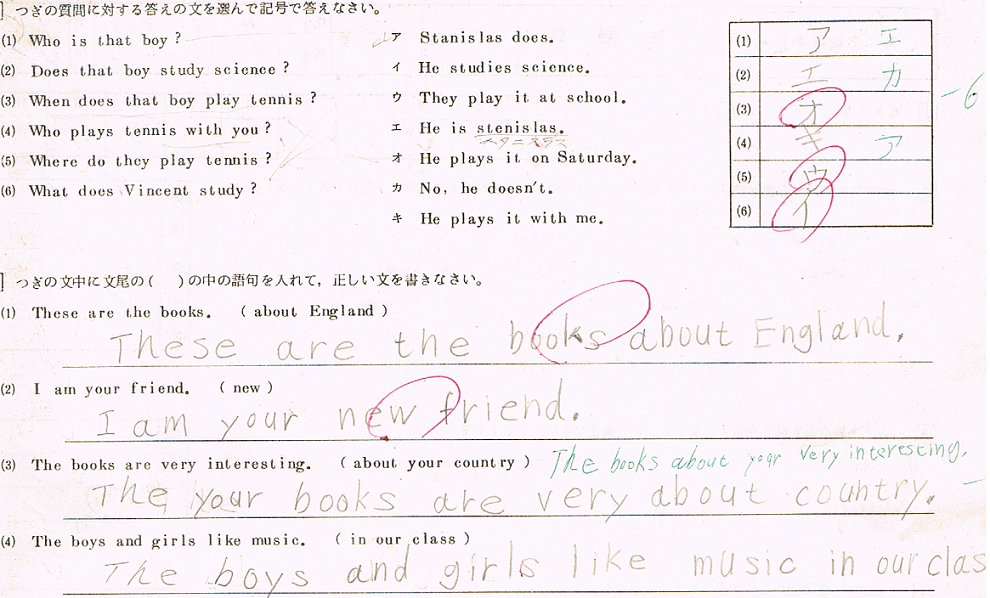 ] つぎの質問に対する答えの文を選んで記号で答えなさい。
(1) Who is that boy ?
(2) Does that boy study science ?
(3) When does that boy play tennis ?
(4) Who plays tennis with you ?
(5) Where do they play tennis ?
(6) What does Vincent study ?
ア Stanislas does.
イ He studies science.
ウ They play it at school.
エ He is stenislas.
スタニスラス
オ He plays it on Saturday.
カ No, he doesn't.
キ He plays it with me.
(1) ア エ
(2) エ カ
(3) オ
(4) キ ア
(5) ウ
(6) イ
-6
] つぎの文中に文尾の( )の中の語句を入れて，正しい文を書きなさい。
(1) These are the books. ( about England )
These are the books about England.
(2) I am your friend. ( new )
I am your new friend.
(3) The books are very interesting. ( about your country )
The books about your very interesting.
The your books are very about country.
(4) The boys and girls like music. ( in our class )
The boys and girls like music in our clas